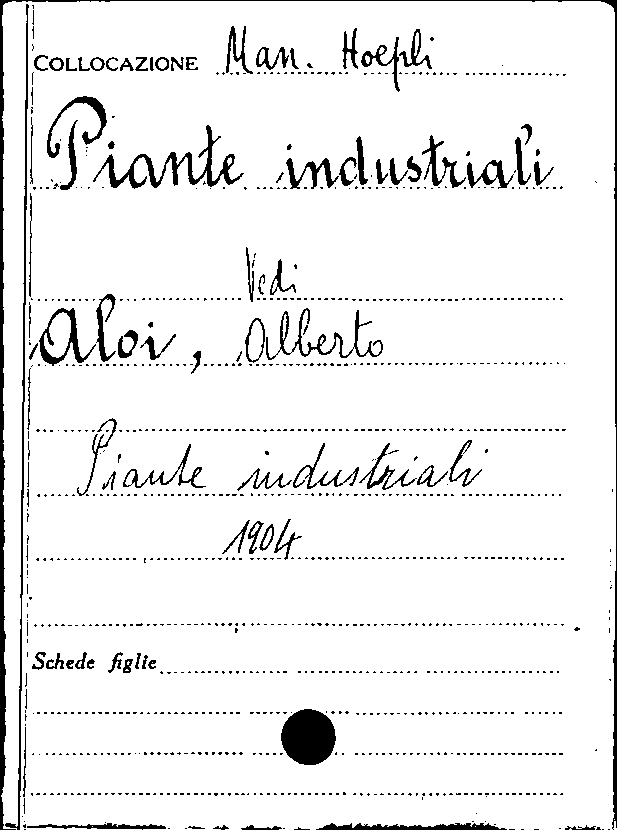 COLLOCAZIONE Man. Hoepli
Piante industriali
Vedi
Aloi, Alberto
Piante industriali
1904
Schede figlie